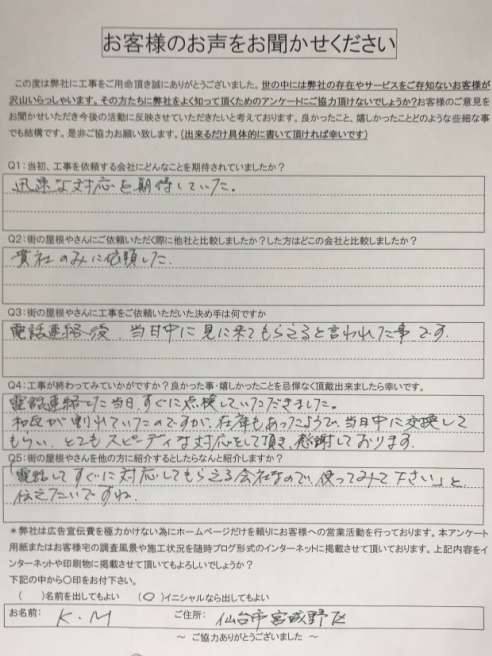 お客様のお声をお聞かせください
この度は弊社に工事をご用命頂き誠にありがとうございました。世の中には弊社の存在やサービスをご存知ないお客様が
沢山いらっしゃいます。その方たちに弊社をよく知って頂くためのアンケートにご協力頂けないでしょうか?お客様のご意見を
お聞かせいただき今後の活動に反映させていただきたいと考えております。良かったこと、嬉しかったことどのような些細な事
でも結構です。是非ご協力お願い致します。(出来るだけ具体的に書いて頂ければ幸いです)
Q1:当初、工事を依頼する会社にどんなことを期待されていましたか?
迅速な対応を期待していた。
Q2:街の屋根やさんにご依頼いただく際に他社と比較しましたか?した方はどこの会社と比較しましたか?
貴社のみに依頼した。
Q3:街の屋根やさんに工事をご依頼いただいた決め手は何ですか
電話連絡後、当日中に見に来てもらえると言われた事です。
Q4:工事が終わってみていかがですか?良かった事・嬉しかったことを忌憚なく頂戴出来ましたら幸いです。
電話連絡した当日、すぐに点検していただきました。
和瓦が割れていたのですが、在庫もあったようで、当日中に交換して
もらい、とてもスピーディな対応をして頂き、感謝しております。
Q5:街の屋根やさんを他の方に紹介するとしたらなんと紹介しますか?
「電話してすぐに対応してもらえる会社なので、使ってみて下さい」と
伝えたいですね。
*弊社は広告宣伝費を極力かけない為にホームページだけを頼りにお客様への営業活動を行っております。本アンケート
用紙またはお客様宅の調査風景や施工状況を随時ブログ形式のインターネットに掲載させて頂いております。上記内容をイ
ンターネットや印刷物に掲載させて頂いてもよろしいでしょうか?
下記の中から〇印をお付下さい。
( )名前を出してもよい (〇)イニシャルなら出してもよい
お名前: K.M ご住所: 仙台市宮城野区
~ ご協力ありがとうございました ~